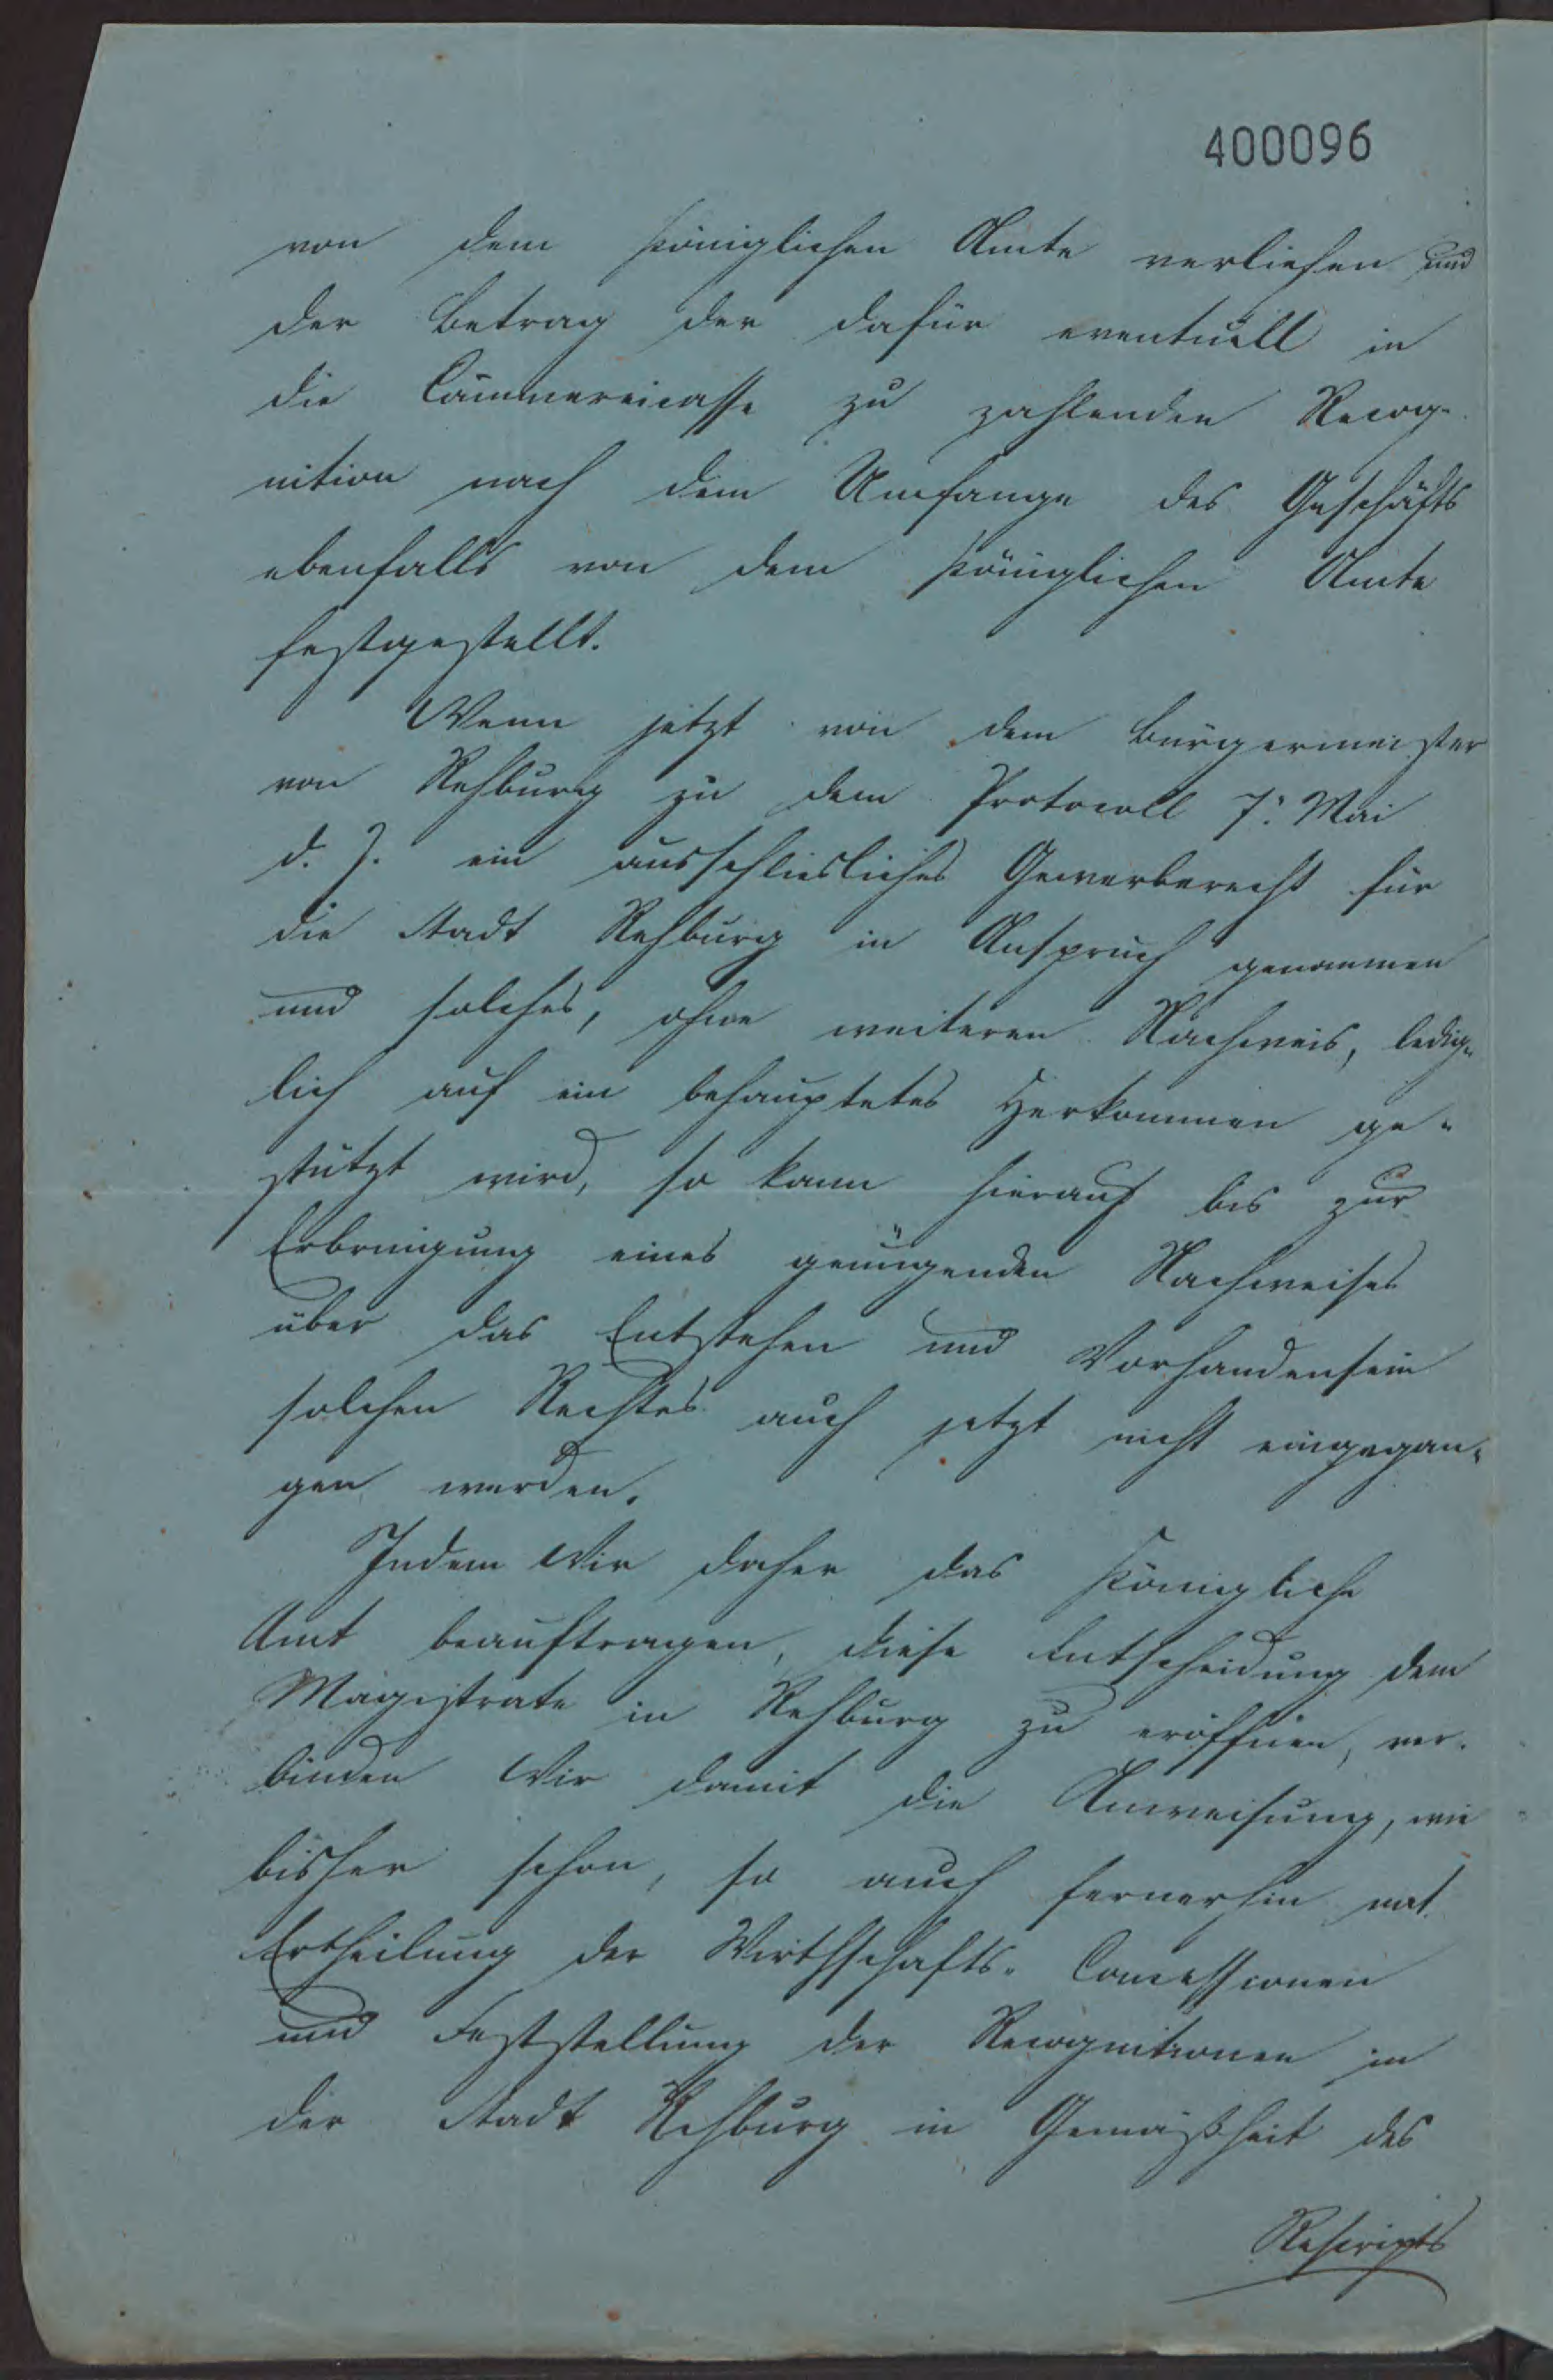 400096
von dem Königlichen Amte verliehen und
der Betrag der dafür eventuell in
die Cämmereicasse zu zahlenden Recog-
nition nach dem Umfange des Geschäfts
ebenfalls von dem Königlichen Amte
festgestellt.
Wenn jetzt von dem Bürgermeister
von Rehburg zu dem Protocoll 7. Mai
d. J. ein ausschliesliches Gewerberecht für
die Stadt Rehburg in Anspruch genommen
und solches, ohne weiteren Nachweis, ledig-
lich auf ein behauptetes Herkommen ge-
stützt wird, so kann hierauf bis zur
Erbringung eines genügenden Nachweises
über das Entstehen und Vorhandensein
solchen Rechtes auch jetzt nicht eingegan-
gen werden.
Indem Wir daher das Königliche
Amt beauftragen, diese Entscheidung dem
Magistrate in Rehburg zu eröffnen, ver-
binden Wir damit die Anweisung, wie
bisher schon, so auch fernerhin mit
Ertheilung der Wirthschafts-Concessionen
und Feststellung der Recognitionen in
der Stadt Rehburg in Gemäßheit des
Rescripts